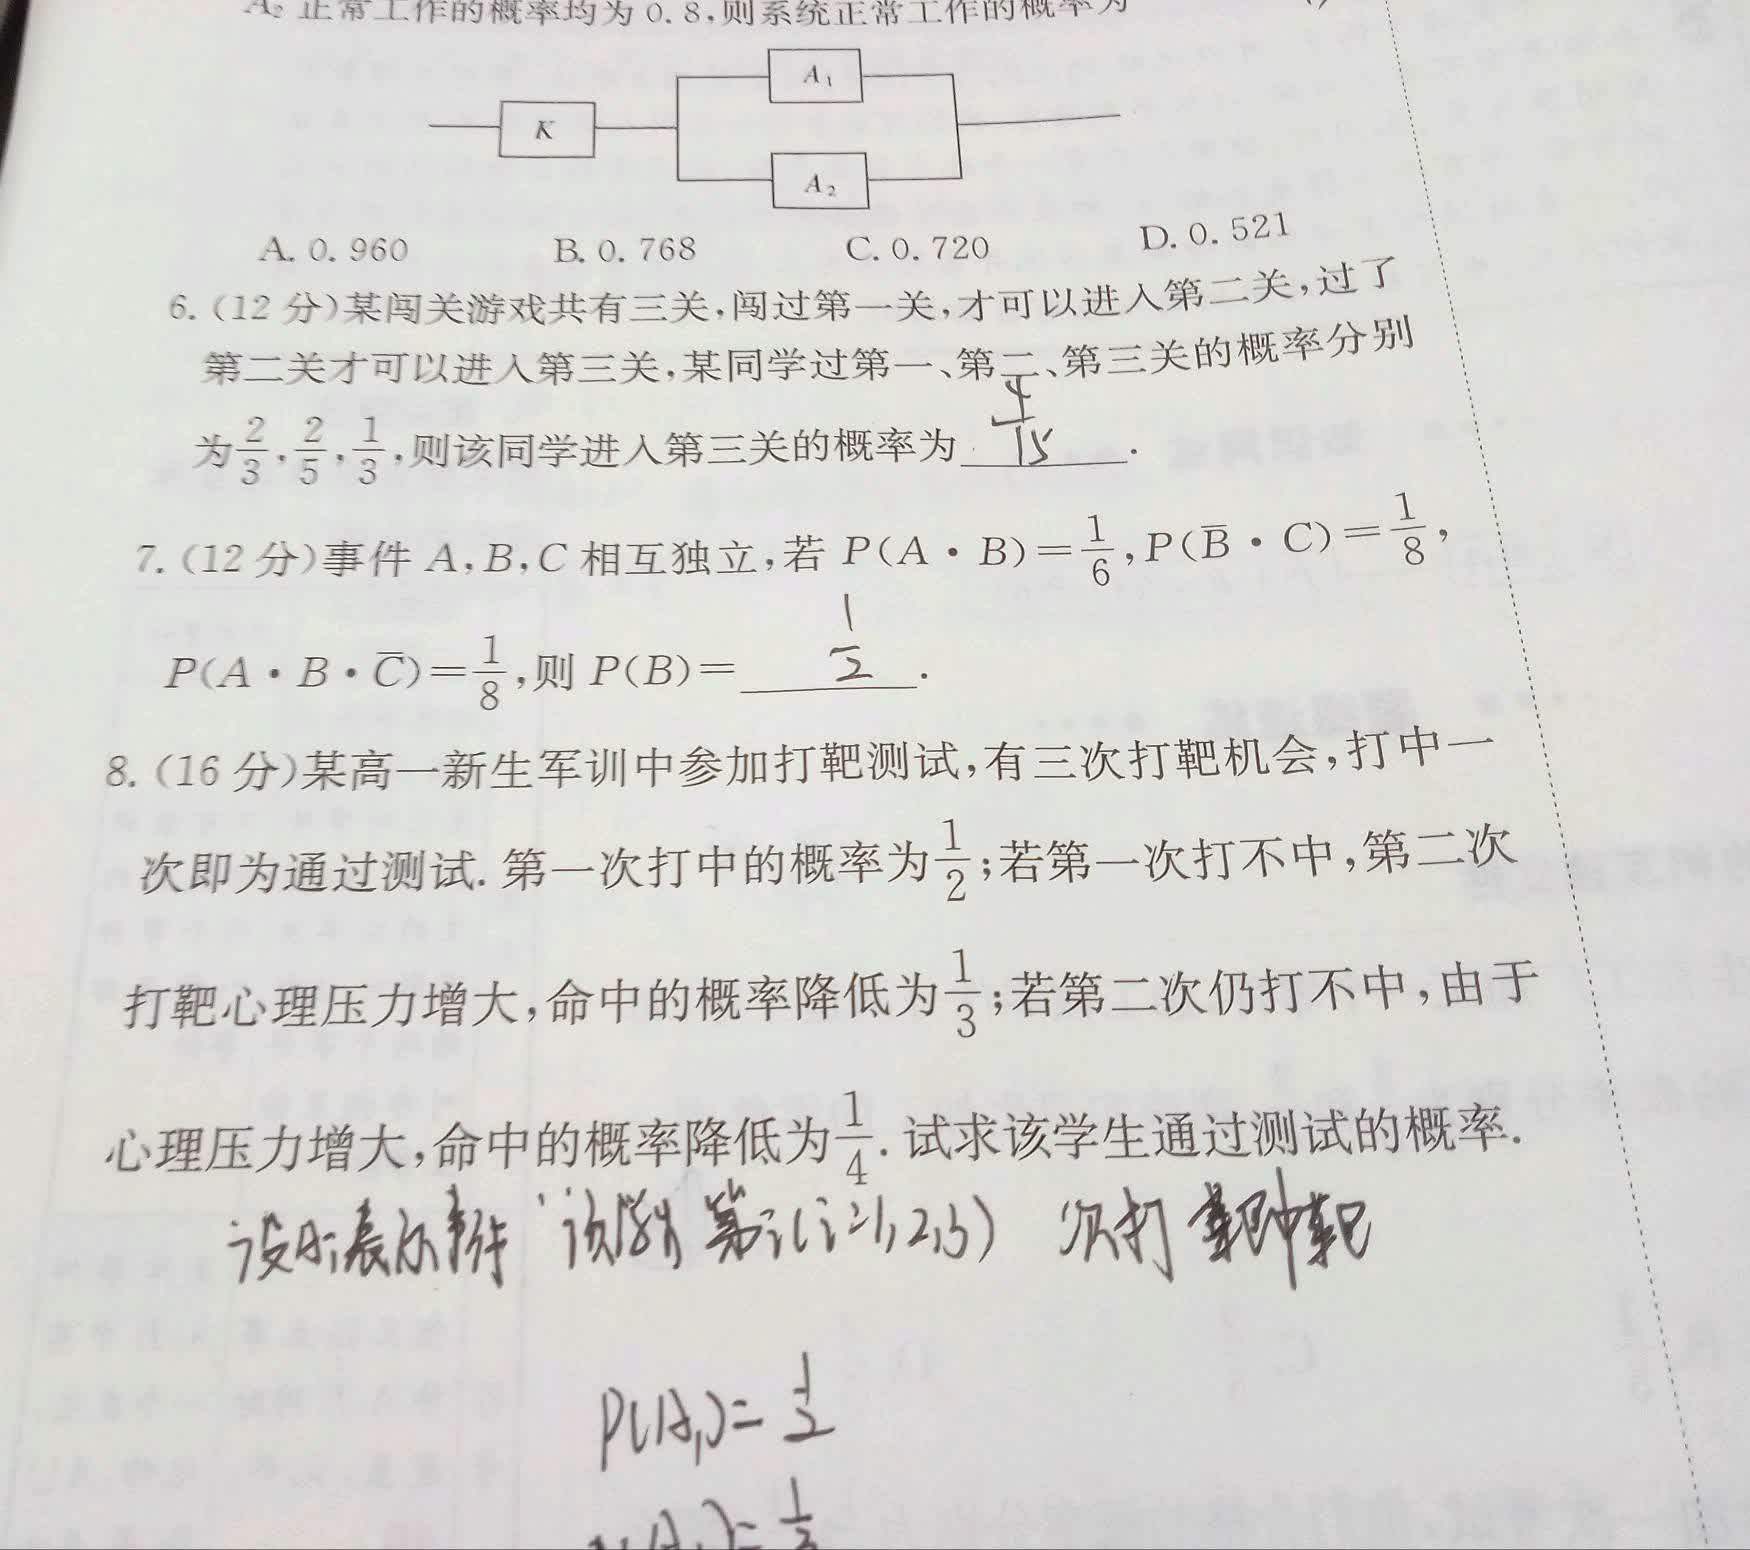 A₂ 正常工作的概率均为 0.8,则系统正常工作的概率为
A₁
K
A₂
A. 0.960 B. 0.768 C. 0.720 D. 0.521
6. (12 分)某闯关游戏共有三关,闯过第一关,才可以进入第二关,过了
第二关才可以进入第三关,某同学过第一、第二、第三关的概率分别
为2/3,2/5,1/3,则该同学进入第三关的概率为 4/15 .
7. (12 分)事件 A,B,C 相互独立,若 P(A·B)=1/6,P(B̅·C)=1/8,
P(A·B·C̅)=1/8,则 P(B)= 1/2 .
8. (16 分)某高一新生军训中参加打靶测试,有三次打靶机会,打中一
次即为通过测试. 第一次打中的概率为1/2;若第一次打不中,第二次
打靶心理压力增大,命中的概率降低为1/3;若第二次仍打不中,由于
心理压力增大,命中的概率降低为1/4. 试求该学生通过测试的概率.
设Aᵢ表示事件 该学生 第i(i=1,2,3) 次打靶中靶
P(A₁)=1/2